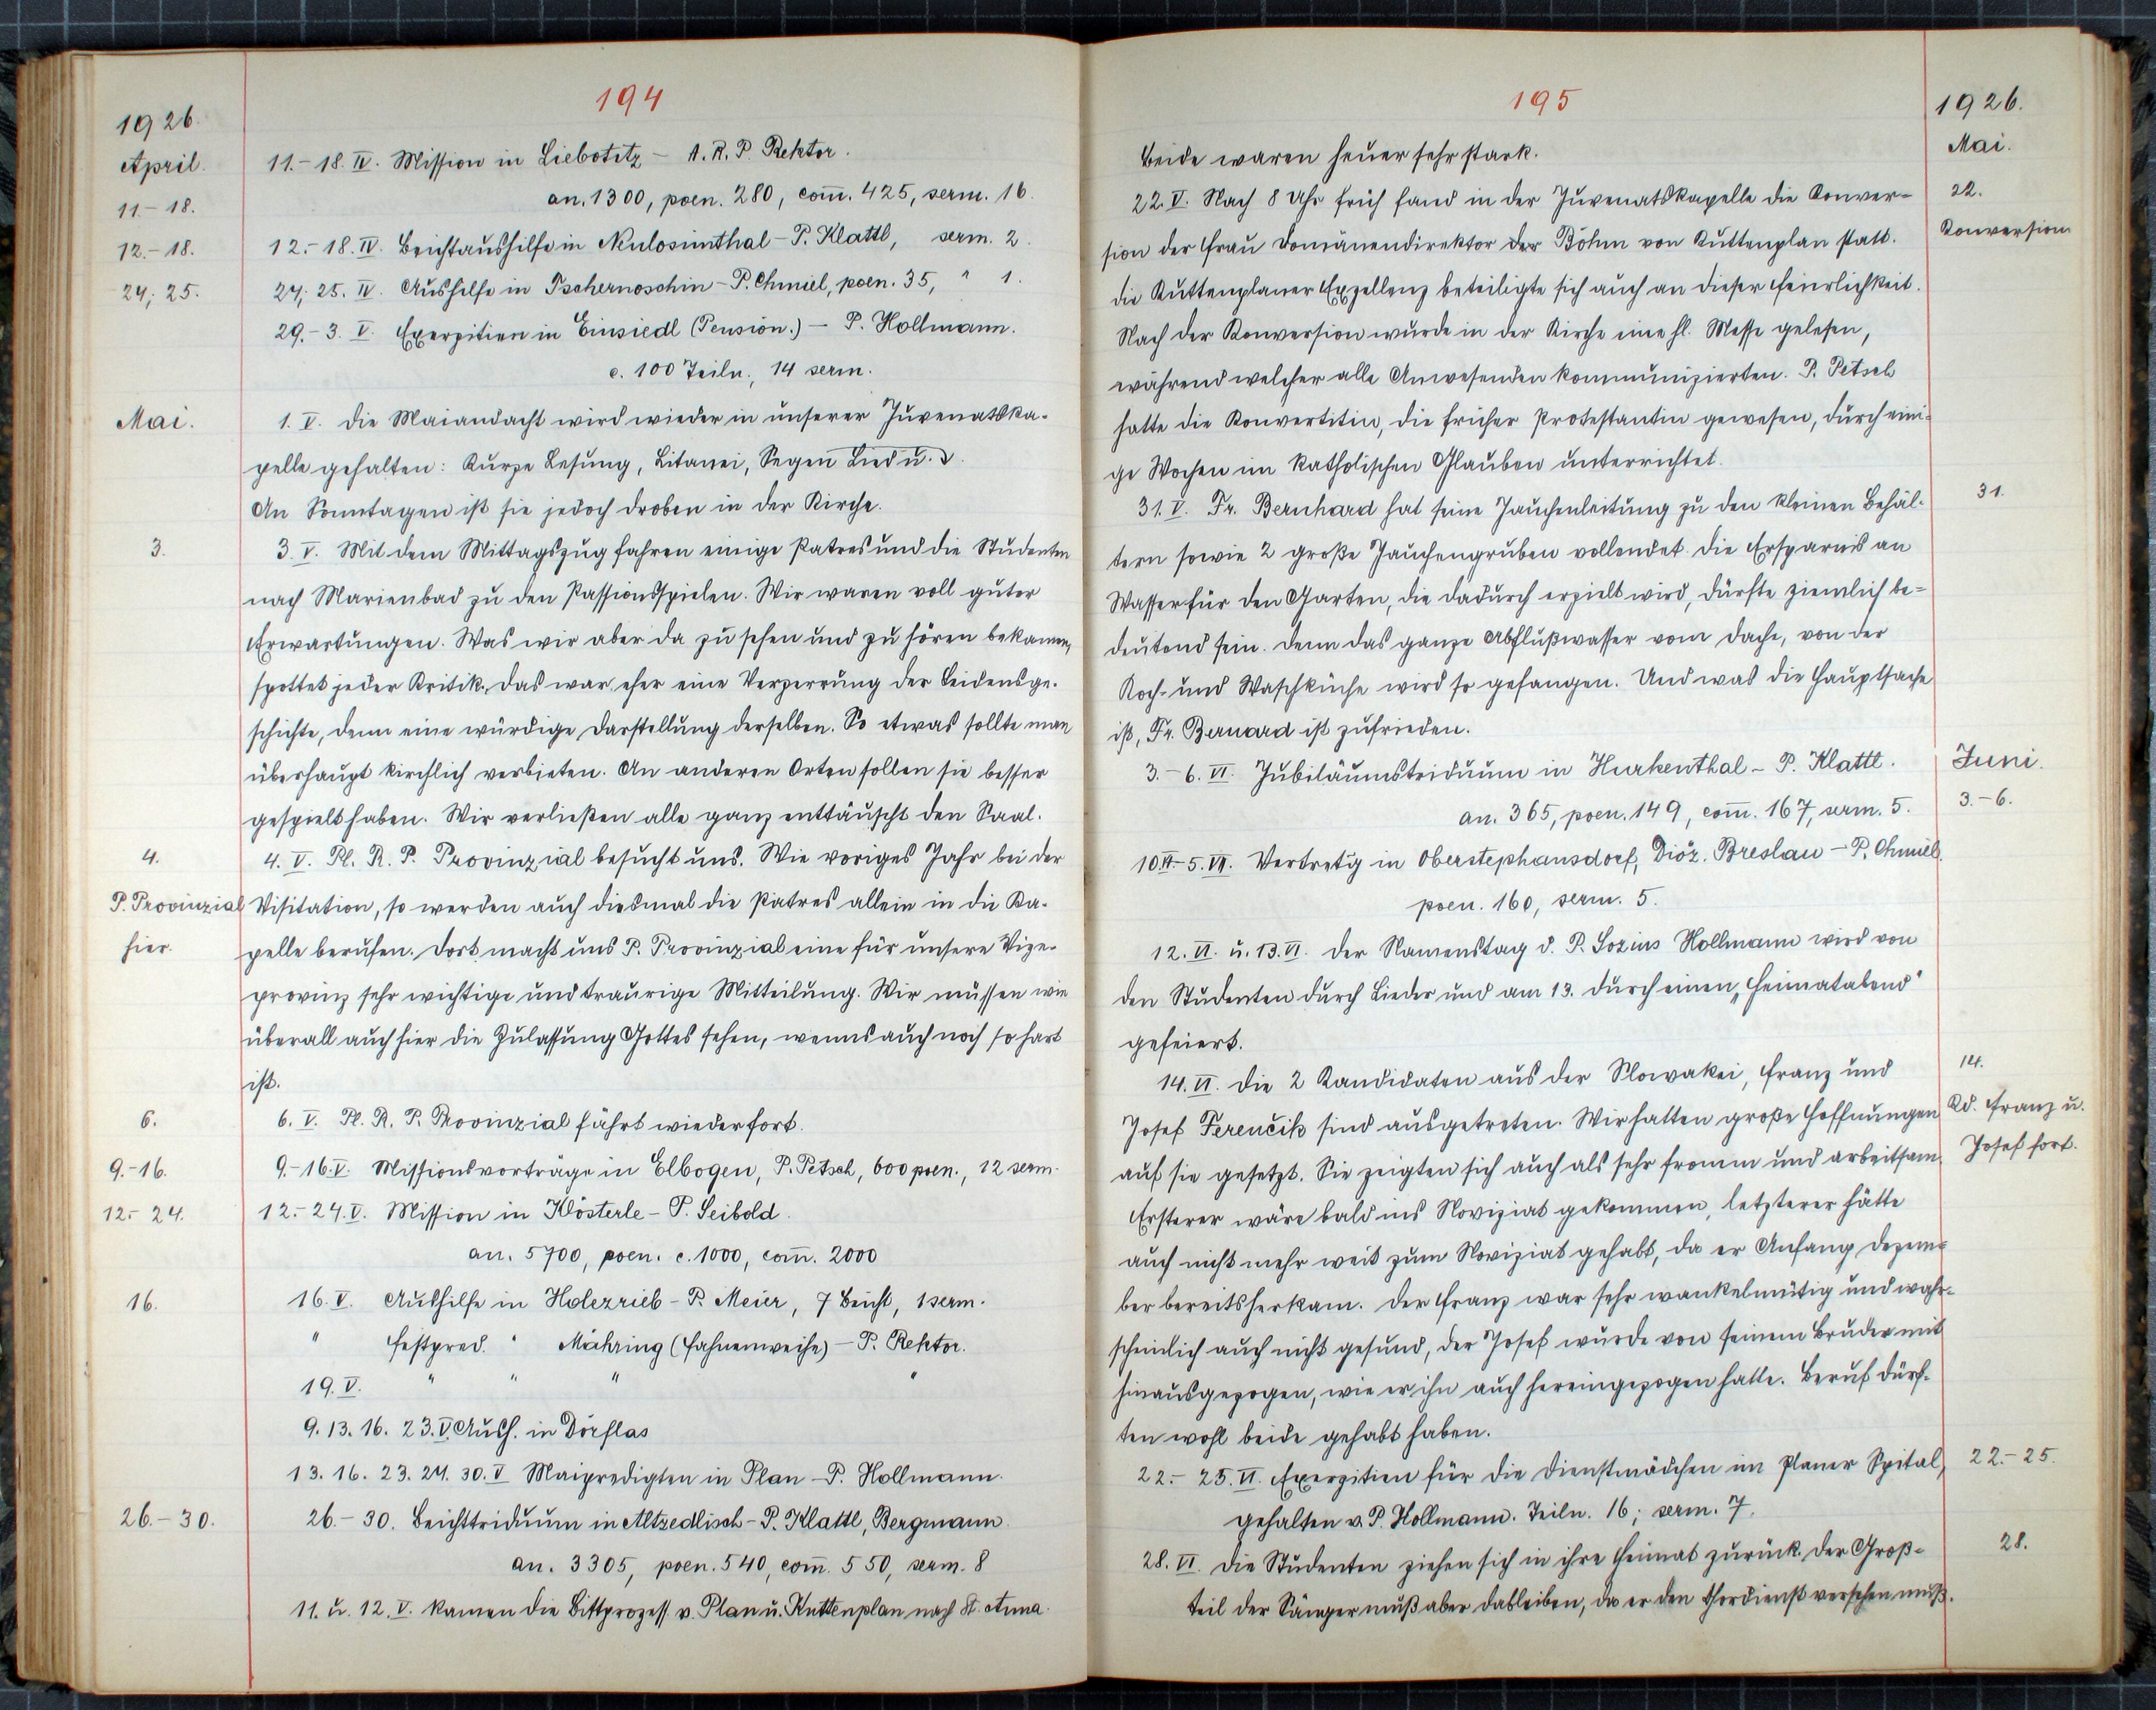 194
1926.
April.
11.-18.
11.-18. IV. Mission in Liebotitz - A. R. P. Rektor.
an. 1300, poen. 280, com̄. 425, serm. 16.
12.-18.
12.-18. IV. Beichtaushilfe in Neulosimthal - P. Klattl, serm. 2.
24; 25.
24; 25. IV. Aushilfe in Tschernoschin - P. Chmiel, poen. 35, " 1.
29.-3. V. Exerzitien in Einsiedl (Pension.) - P. Hollmann.
c. 100 Teiln., 14 serm.
Mai.
1. V. Die Maiandacht wird wieder in unserer Juvenatska-
pelle gehalten: Kurze Lesung, Litanei, Segen Lied u.
An Sonntagen ist sie jedoch droben in der Kirche.
3.
3. V. Mit dem Mittagszug fahren einige Patres und die Studenten
nach Marienbad zu den Passionsspielen. Wir waren voll guter
Erwartungen. Was wir aber da zu sehen und zu hören bekamen,
spottet jeder Kritik. Das war eher eine Verzerrung der Leidensge-
schichte, denn eine würdige Darstellung derselben. So etwas sollte man
überhaupt kirchlich verbieten. An anderen Orten sollen sie besser
gespielt haben. Wir verließen alle ganz enttäuscht den Saal.
4.
P. Provinzial
hier.
4. V. Pl. R. P. Provinzial besucht uns. Wie voriges Jahr bei der
Visitation, so werden auch diesmal die Patres allein in die Ka-
pelle berufen. Dort macht uns P. Provinzial eine für unsere Vize-
provinz sehr wichtige und traurige Mitteilung. Wir müssen wie
überall auch hier die Zulassung Gottes sehen, wenns auch noch so hart
ist.
6.
6. V. Pl. R. P. Provinzial fährt wieder fort.
9.-16.
9.-16. V. Missionsvorträge in Elbogen, P. Petsch, 600 poen., 12 serm.
12.-24.
12.-24. V. Mission in Klösterle - P. Seibold.
an. 5700, poen. c. 1000, com̄. 2000
16.
16. V. Aushilfe in Holezrieb - P. Meier, 7 Beicht, 1 serm.
" Festpred. " Mähring (Fahnenweihe) - P. Rektor.
19. V. " " " "
9. 13. 16. 23. V. Aush. in Dörflas
13. 16. 23. 24. 30. V Maipredigten in Plan - P. Hollmann.
26.-30.
26.-30. Beichttriduum in Altzedlisch - P. Klattl, Bergmann.
an. 3305, poen. 540, com̄. 550, serm. 8
11. u. 12. V. kamen die Bittprozess. v. Plan u. Kuttenplan nach St. Anna.
195
1926.
Mai.
Beide waren heuer sehr stark.
22.
Konversion
22. V. Nach 8 Uhr früh fand in der Juvenatskapelle die Konver-
sion der Frau Domänendirektor der Böhm von Kuttenplan statt.
Die Kuttenplaner Exzellenz beteiligte sich auch an dieser Feierlichkeit.
Nach der Konversion wurde in der Kirche eine hl. Messe gelesen,
während welcher alle Anwesenden kommunizierten. P. Petsch
hatte die Konvertitin, die früher Protestantin gewesen, durch eini-
ge Wochen im katholischen Glauben unterrichtet.
31.
31. V. Fr. Bernhard hat seine Jauchenleitung zu den kleinen Behäl-
tern sowie 2 große Jauchengruben vollendet. Die Ersparnis an
Wasser für den Garten, die dadurch erzielt wird, dürfte ziemlich be-
deutend sein. Denn das ganze Abflußwasser vom Dache, von der
Koch- und Waschküche wird so gefangen. Und was die Hauptsache
ist, Fr. Bernard ist zufrieden.
Juni.
3.-6.
3.-6. VI. Jubiläumstriduum in Hurkenthal - P. Klattl.
an. 365, poen. 149, com̄. 167, serm. 5.
10. VI.-5. VII. Vertretg in Oberstephansdorf, Diöz. Breslau - P. Chmiel.
poen. 160, serm. 5.
12. VI. u. 13. VI. Der Namenstag d. P. Sozius Hollmann wird von
den Studenten durch Lieder und am 13. durch einen „Heimatabend"
gefeiert.
14.
Kd. Franz u.
Josef fort.
14. VI. Die 2 Kandidaten aus der Slowakei, Franz und
Josef Ferenčik sind ausgetreten. Wir hatten große Hoffnungen
auf sie gesetzt. Sie zeigten sich auch als sehr fromm und arbeitsam.
Ersterer wäre bald ins Noviziat gekommen, letzterer hätte
auch nicht mehr weit zum Noviziat gehabt, da er Anfang Dezem-
ber bereits herkam. Der Franz war sehr wankelmütig und wahr-
scheinlich auch nicht gesund, der Josef wurde von seinem Bruder mit
hinausgezogen, wie er ihn auch hereingezogen hatte. Beruf dürf-
ten wohl beide gehabt haben.
22.-25.
22.-25. VI. Exerzitien für die Dienstmädchen im Planer Spital,
gehalten v. P. Hollmann. Teiln. 16; serm. 7.
28.
28. VI. Die Studenten ziehen sich in ihre Heimat zurück. Der Groß-
teil der Sänger muß aber dableiben, da er den Chordienst versehen muß.